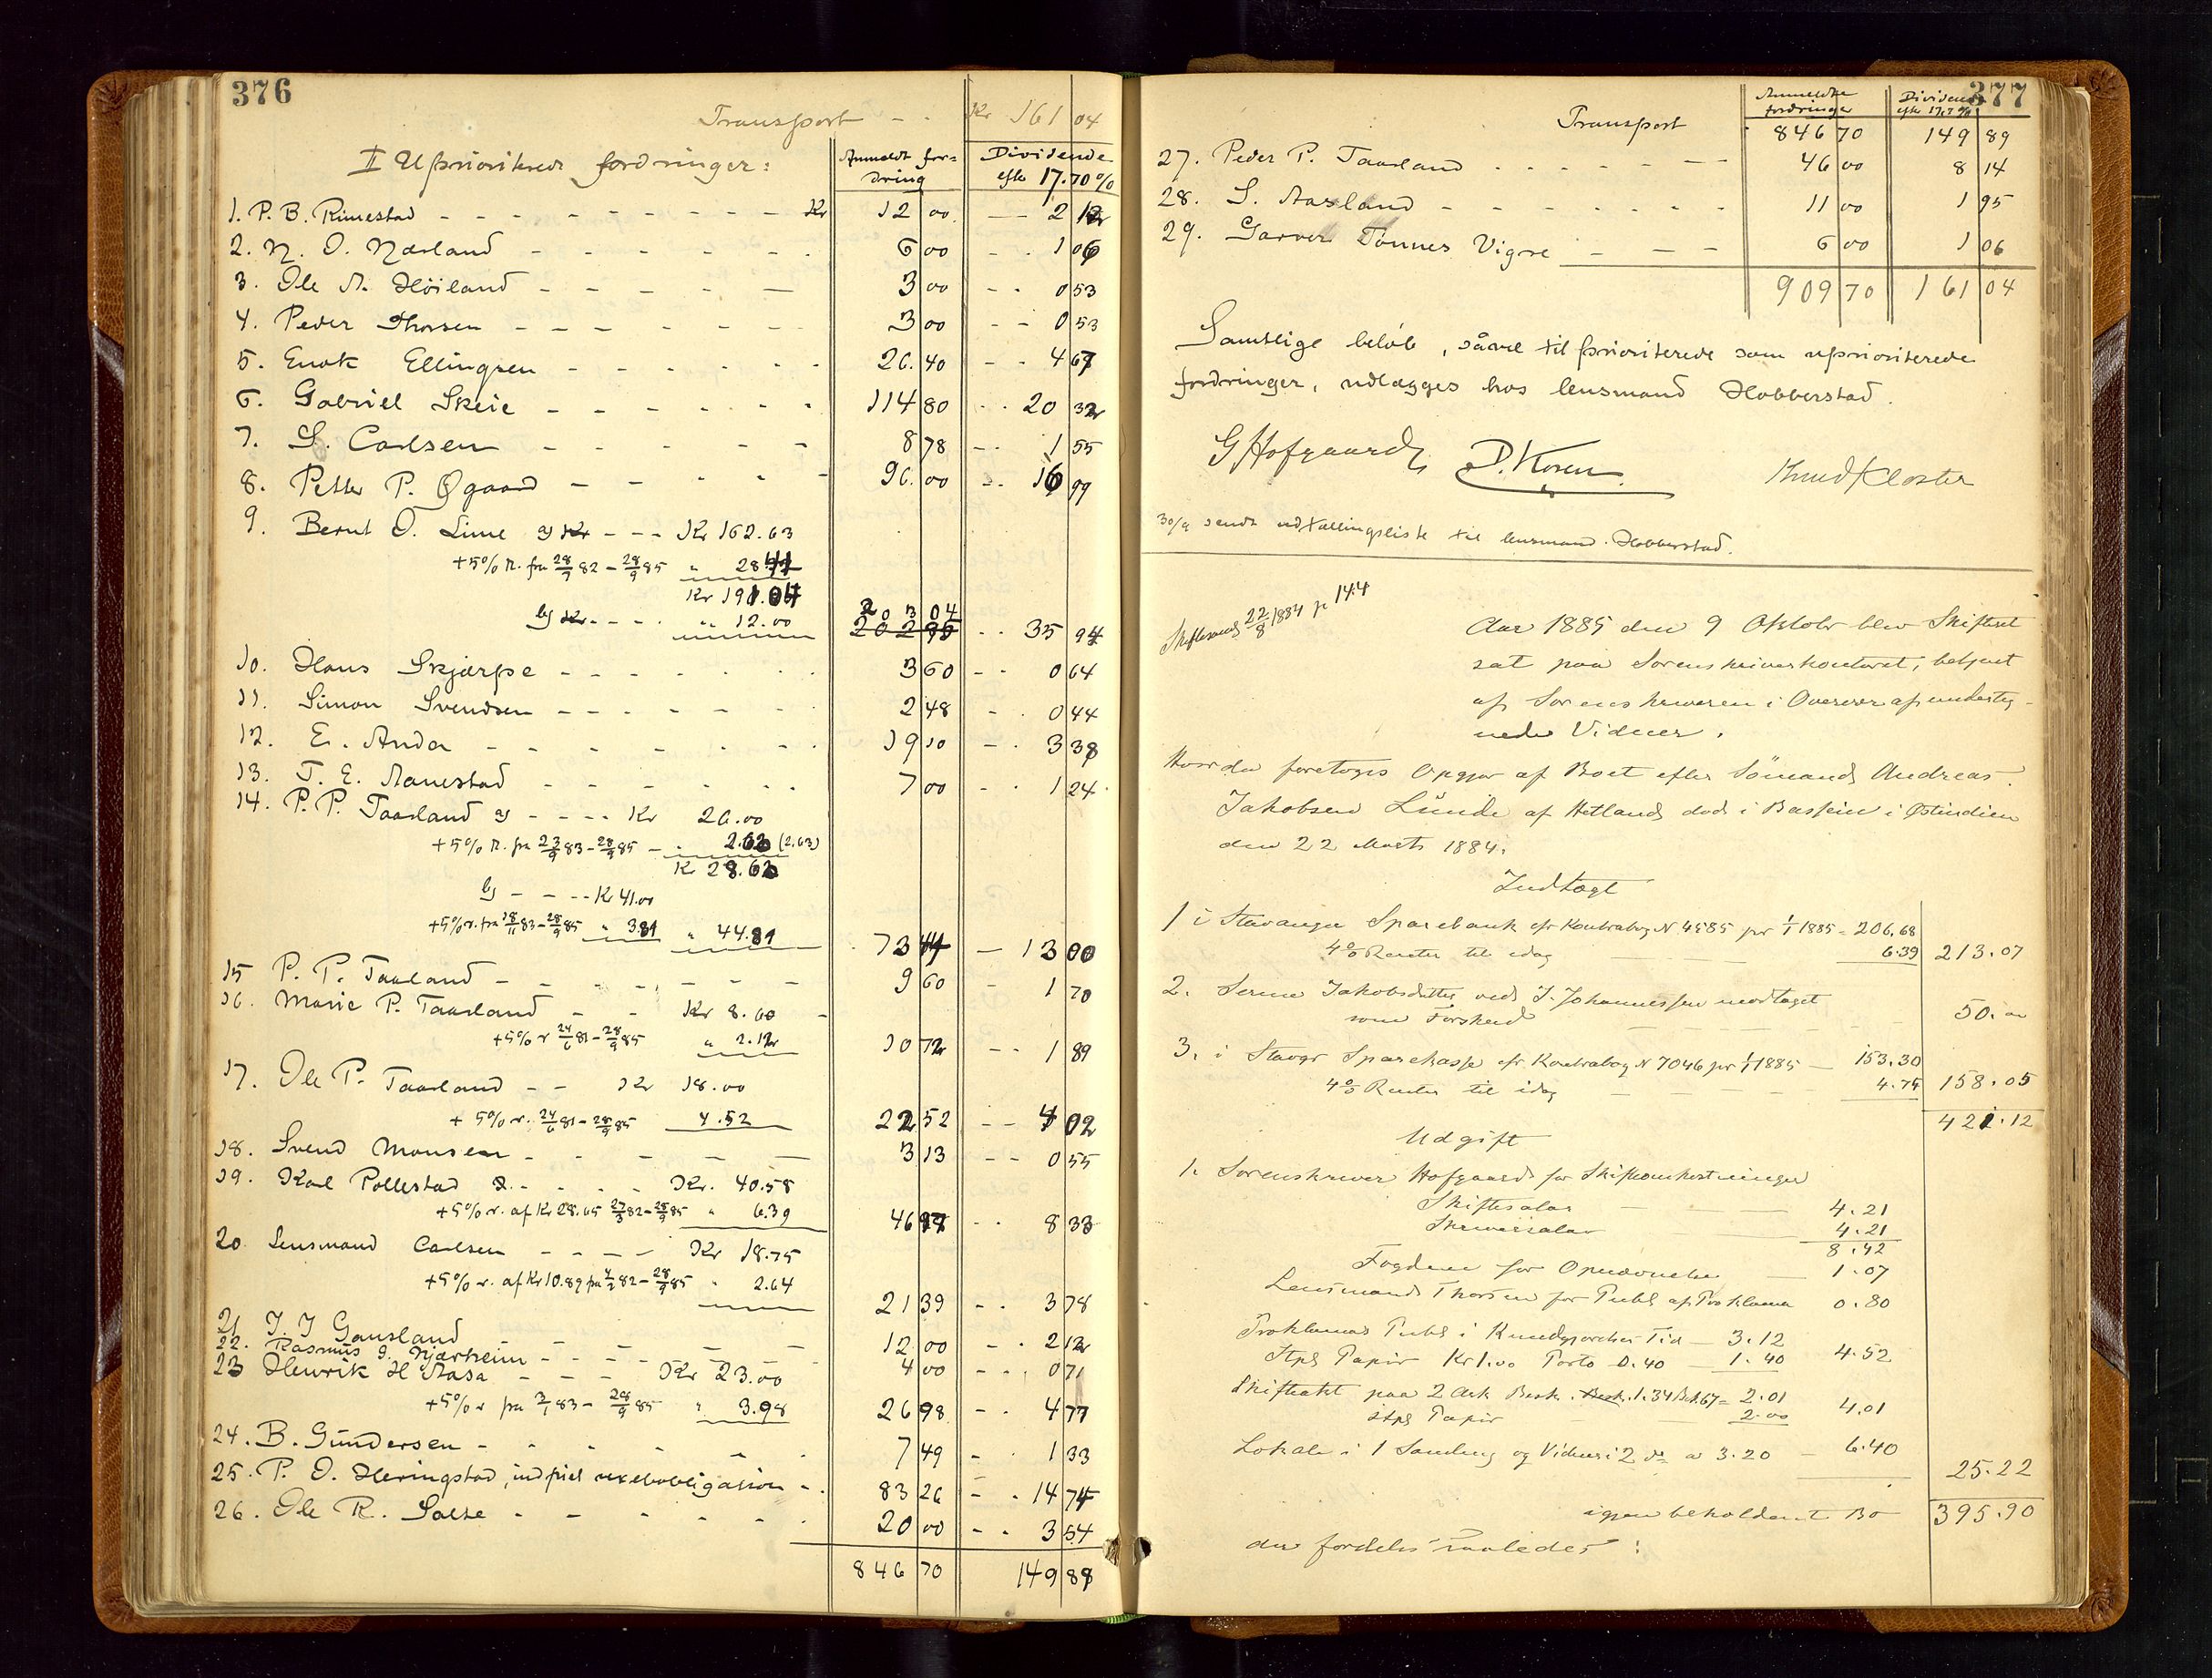 376
Transport - - Kr 161 04
II Uprioriterede fordringer: Anmeldt for- Dividende
dring efter 17.70 %
1. P. B. Rimestad - - - - - - - - - Kr 12 00 - - 2 12
2. N. O. Nærland - - - - - - 6 00 - - 1 06
3. Ole A. Höiland - - - - - 3 00 - - 0 53
4. Peder Thorsen - - - - - - 3 00 - - 0 53
5. Enok Ellingsen - - - - - - 26. 40 - - 4 67
6. Gabriel Skeie - - - - - - 114 80 - - 20 32
7. S. Carlsen - - - - - 8 78 - - 1 55
8. Petter P. Øgaard - - - - - 96. 00 - - 16 99
9. Bernt O. Lime a) Kr - - - Kr 162.63
+5% R. fra 28/7 82 - 28/9 85 " 28.41
Kr 191.04
b) Kr - - - - " 12.00 203 04
202 95 - - 35 94
10. Hans Skjærpe - - - - - - 3 60 - - 0 64
11. Simon Svendsen - - - - - - 2 48 - - 0 44
12. E. Anda - - - - - - 19 10 - - 3 38
13. T. E. Aanestad - - - - - - 7 00 - - 1 24
14. P. P. Taarland a) - - - - Kr 26.00
+5% R. fra 23/9 83 - 28/9 85 - " 2.63 (2.63)
Kr 28.63
b) - - - - Kr 41.00
+5% r. fra 18/11 83 - 28/9 85 " 3.81 " 44.81 73 44 - 13 00
15 P. T. Taarland - - - - - - - 9 60 - 1 70
16. Marie P. Taarland - - Kr 8.60 -
+5% r 24/6 81 - 28/9 85 " 2.12 10 72 - - 1 89
17. Ole P. Taarland - - Kr 18.00
+ 5% r. 24/6 81 - 28/9 85 4.52 22 52 - - 4 02
18. Svend Monsen - - - - - - 3 13 - - 0 55
19. Karl Pollestad - - - - Kr. 40.58
+5% r. af Kr 28.65 27/3 82 - 28/9 85 " 6.39 46 97 - - 8 33
20 Lensmand Carlsen - - - - Kr 18.75
+5% r. af Kr 10.89 fra 4/2 82 - 28/9 85 " 2.64 21 39 - - 3 78
21 T. T Gausland - - - - - 12 00 - - 2 12
22. Rasmus G. Njærheim - - - - - 4 00 - - 0 71
23 Henrik H Aasa - - - Kr 23.00
+5% r fra 3/1 83 - 28/9 85 " 3.98 26 98 - - 4 77
24. B. Gundersen - - - - - - 7 49 - - 1 33
25. P. O. Heringstad, indfriet vexelobligasion - - 83 26 - - 14 74
26. Ole R. Salte - - - - - - 20 00 - - 3 54
846 70 149 89
377
Anmeldte Dividende
fordringer efter 17.70 %
Transport 846 70 149 89
27. Peder P. Taarland - - - - - - 46 00 8 14
28. S. Aasland - - - - - - - 11 00 1 95
29. Garver Tönnes Vigre - - - 6 00 1 06
909 70 161 04
Samtlige beløb, såvel til prioriterede som uprioriterede
fordringer, udlægges hos lensmand Hobberstad.
G Hofgaard D. Koren Knud Kloster
30/9 sendt udtællingsliste til lensmand Hobberstad.
Skiftesamml 22/8 1884 p 144
Aar 1885 den 9 Oktobr blev Skifteret
sat paa Sorenskriverkontoret, betjent
af Sorenskriveren i Overvær af underteg-
nede Vidner.
Hvorda foretoges Opgjør af Boet efter Sömand Andreas
Jakobsen Lünde af Hetland, död i Bassein i Østindien
den 22 Marts 1884.
Indtægt
1 i Stavanger Sparebank efr Kontrabog N 4585 pr 1/1 1885 = 206,68
4% Renter til idag - - - 6.39 213.07
2. Serine Jakobsdatter ved J. Johannessen modtaget
som Forskud - - - - 50.00
3. i Stavgr Sparekasse efr Kontrabog N 7046 pr 1/1 1885 - 153.30
4% Renter til idag - - - 4.75 158.05
421.12
Udgift
1. Sorenskriver Hofgaard for Skifteomkostninger
Skiftesalær - - - 4.21
Skriversalær - 4.21
8.42
Fogden for Oprævnelse - 1.07
Lensmand Thorsen for Publ af Proklama 0.80
Proklamas Publ i Kundgjørelses Tid - 3.12
Stpl Papir Kr 1.00 Porto 0.40 - 1.40 4.52
Skifteakt paa 2 Ark Besk. Besk. 1.34 Bst. 67 = 2.01
stpl Papir - 2.00 4.01
Lokale i 1 Samling og Vidner i 2 do a 3.20 - 6.40
25.22
igjen beholdent Bo 395.90
der fordeles saaledes: